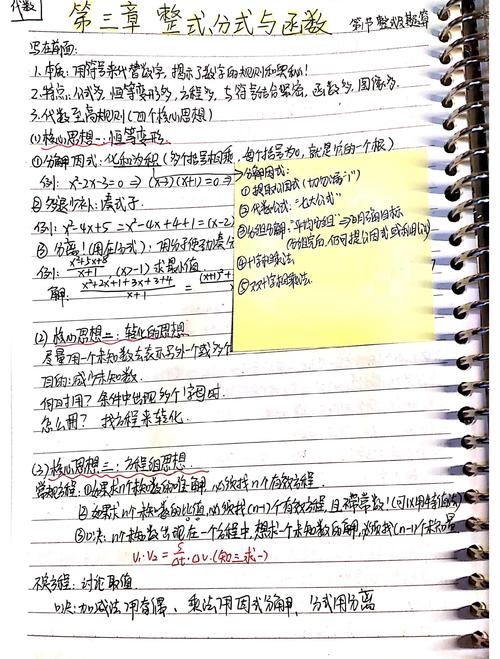 代数
第三章 整式、分式与函数 第1节 整式及其运算
写在前面:
1.本质:用符号来代替数字,揭示了数字的规则和奥秘!
2.特点:公式多,恒等变形多,方程多,与符号结合紧密,函数多,图像多.
3.代数至高规则(四个核心思想)
(1)核心思想一:恒等变形
①分解因式:化和为积(多个括号相乘,每个括号为0,就是它的一个根)
例:x²-2x-3=0 ⇒ (x-3)(x+1)=0 ⇒
例:x²-4x+5=x²-4x+4+1=(x-2)
③分离!(用在分式):用分子
例: x²+5x+8/x+1 (x>-1)求最小值
解: x²+2x+1+3x+3+4/x+1 = (x+1)²+
分解因式:
①提取公因式
②代数公式:"七大公式"
③分组分解:"平均分组"
分组完后,仍可提公因式或利用公式
④十字相乘法
⑤双十字相乘法.
(2)核心思想二:转化的思想
尽量用一个未知数去表示另外一个或多个
目的:减少未知数.
何时用?条件中出现多个字母时.
怎么用?找方程来转化.
(3)核心思想三:方程组思想.
常规方程:①如果求n个未知数的唯一解,必须找n个有效方程.
②如果求n个未知数的比值,必须找(n-1)个有效方程,且无常数!
③n个未知数出现在一个方程中,想求一个未知数的解,必须找(n-1)个未知量.
(知三求一)
不定方程:讨论取值
加减法用奇偶、乘法用因式分解、分式用分离